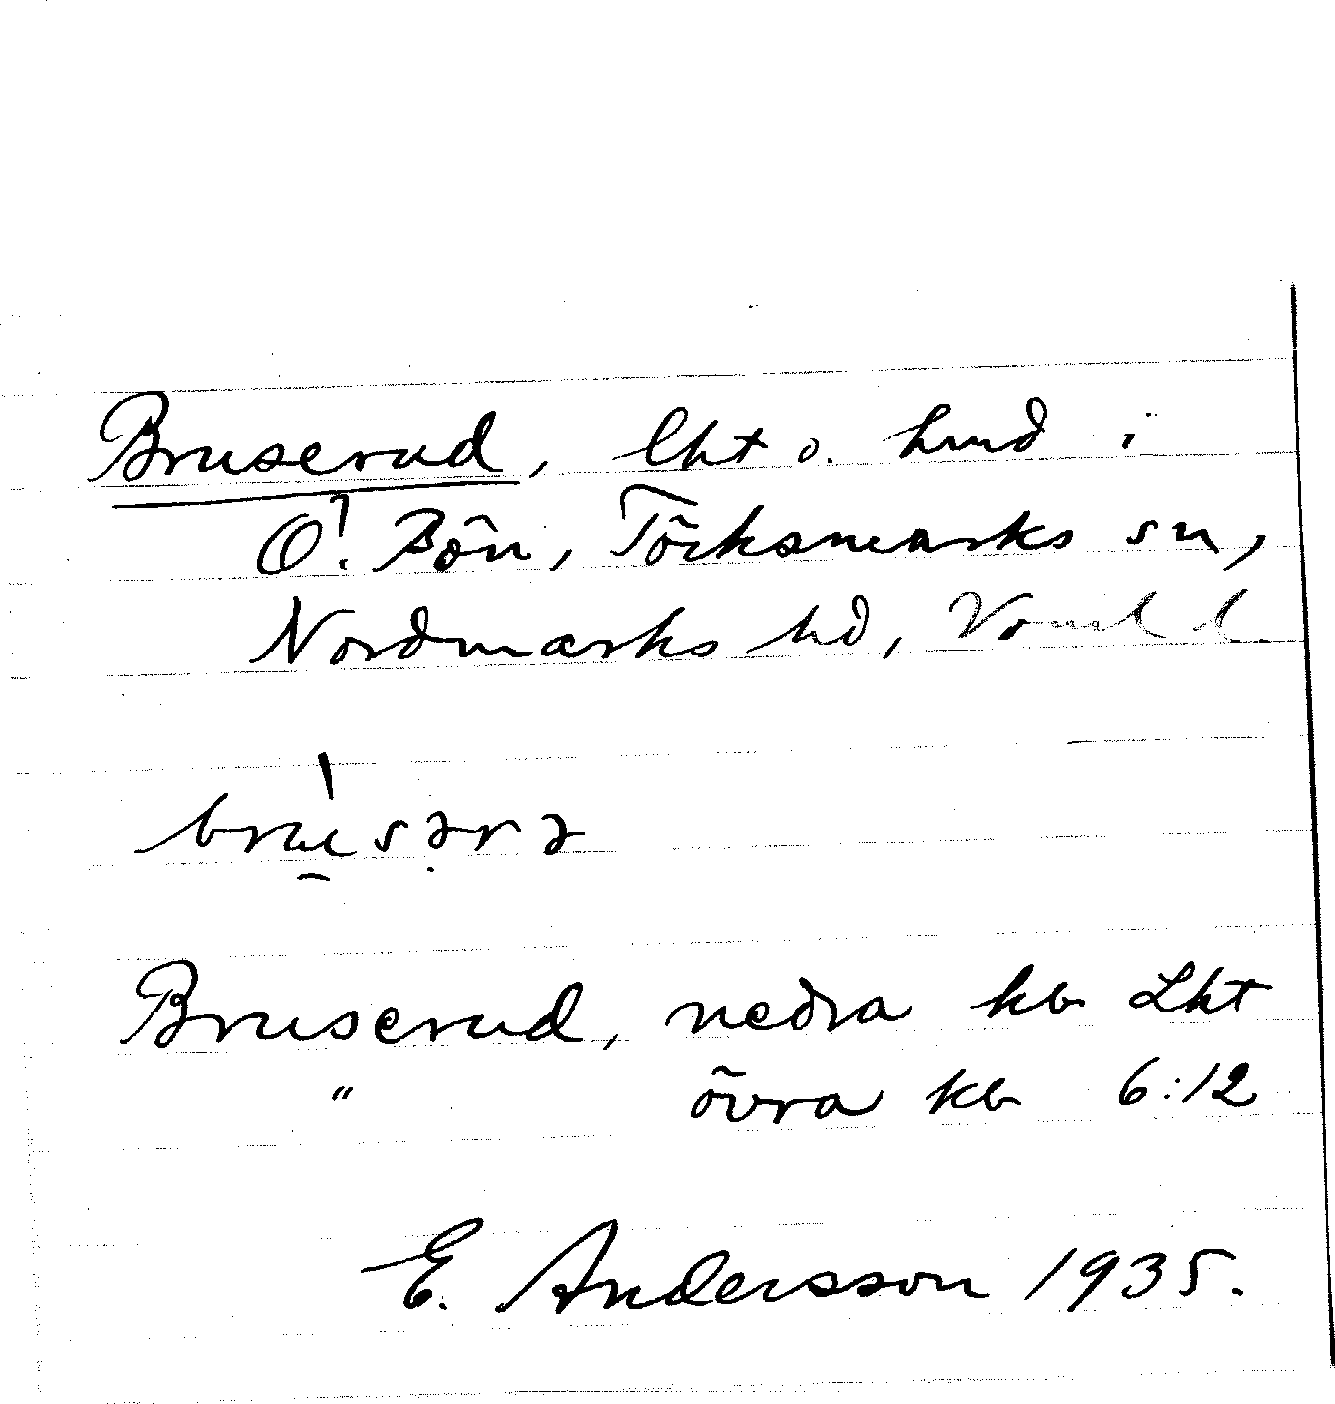 Bruserud, lht o. hmd i
Ö. Bön, Töcksmarks sn,
Nordmarks hd, Värml l.
brùsərə
Bruserud, nedra kb Lkt
" övra kb 6:12
E. Andersson 1935.